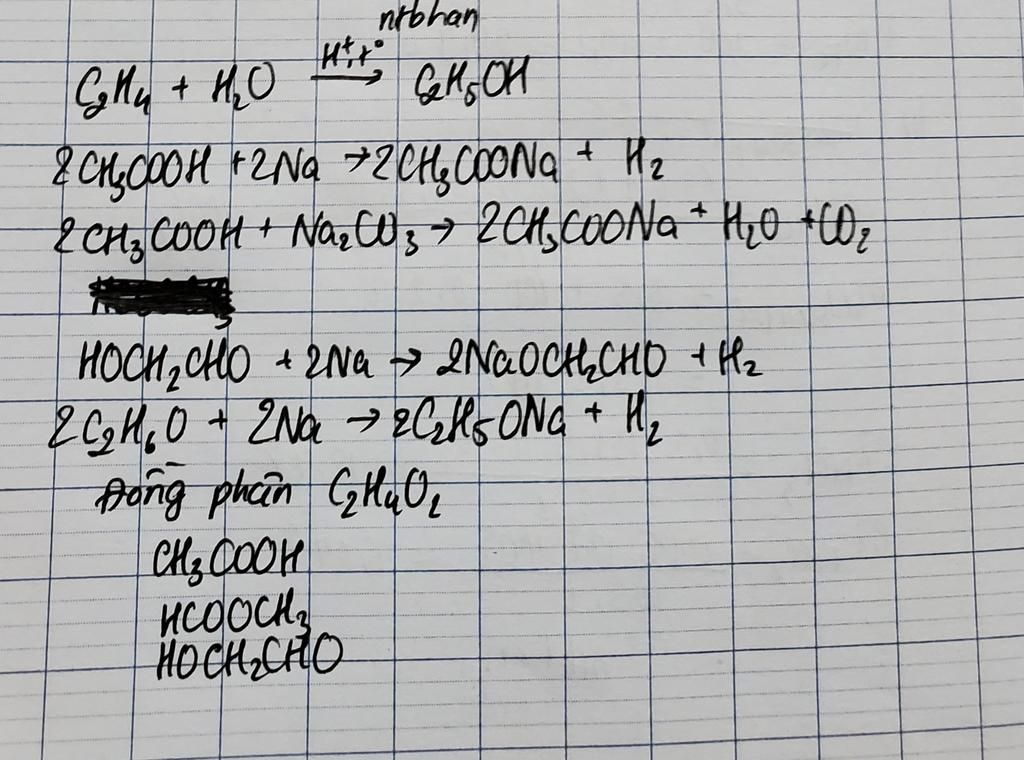 C₂H₄ + H₂O H⁺,t° → C₂H₅OH
2CH₃COOH + 2Na → 2CH₃COONa + H₂
2CH₃COOH + Na₂CO₃ → 2CH₃COONa + H₂O + CO₂
HOCH₂CHO + 2Na → 2NaOCH₂CHO + H₂
2C₂H₆O + 2Na → 2C₂H₅ONa + H₂
Đồng phân C₂H₄O₂
CH₃COOH
HCOOCH₃
HOCH₂CHO